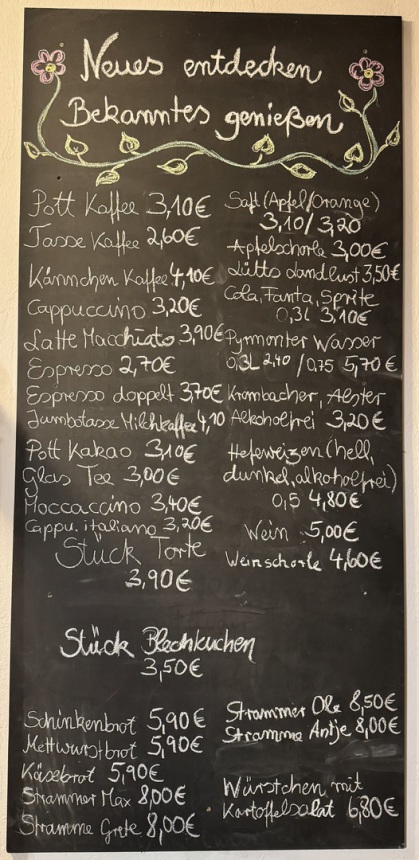 Neues entdecken
Bekanntes genießen
Pott Kaffee 3,10€
Tasse Kaffee 2,60€
Kännchen Kaffee 4,10€
Cappuccino 3,20€
Latte Macchiato 3,90€
Espresso 2,70€
Espresso doppelt 3,70€
Jumbotasse Milchkaffee 4,10
Pott Kakao 3,10€
Glas Tee 3,00€
Moccaccino 3,40€
Cappu. italiano 3,20€
Stück Torte
3,90€
Saft (Apfel/Orange)
3,10/3,20
Apfelschorle 3,00€
Lütts Landlust 3,50€
Cola, Fanta, Sprite
0,3l 3,10€
Pyrmonter Wasser
0,3L 2,40 / 0,75 5,70€
Krombacher, Alster
Alkoholfrei 3,20€
Hefeweizen (hell,
dunkel, alkoholfrei)
0,5 4,80€
Wein 5,00€
Weinschorle 4,60€
Stück Blechkuchen
3,50€
Schinkenbrot 5,90€
Mettwurstbrot 5,90€
Käsebrot 5,90€
Strammer Max 8,00€
Stramme Grete 8,00€
Strammer Ole 8,50€
Stramme Antje 8,00€
Würstchen mit
Kartoffelsalat 6,80€